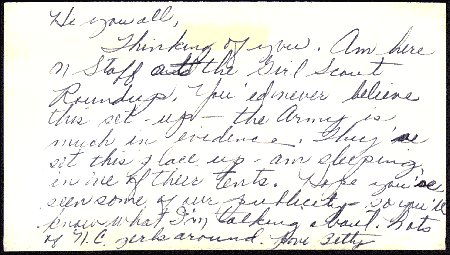 Hi you all,
Thinking of you. Am here
on Staff at the Girl Scout
Roundup. You'ed never believe
this set-up - the Army is
much in evidence. They've
set this place up - am sleeping
in one of their tents. Hope you've
seen some of our publicity so you'll
know what I'm talking about. Lots
of N.C. girls around. Love Betty